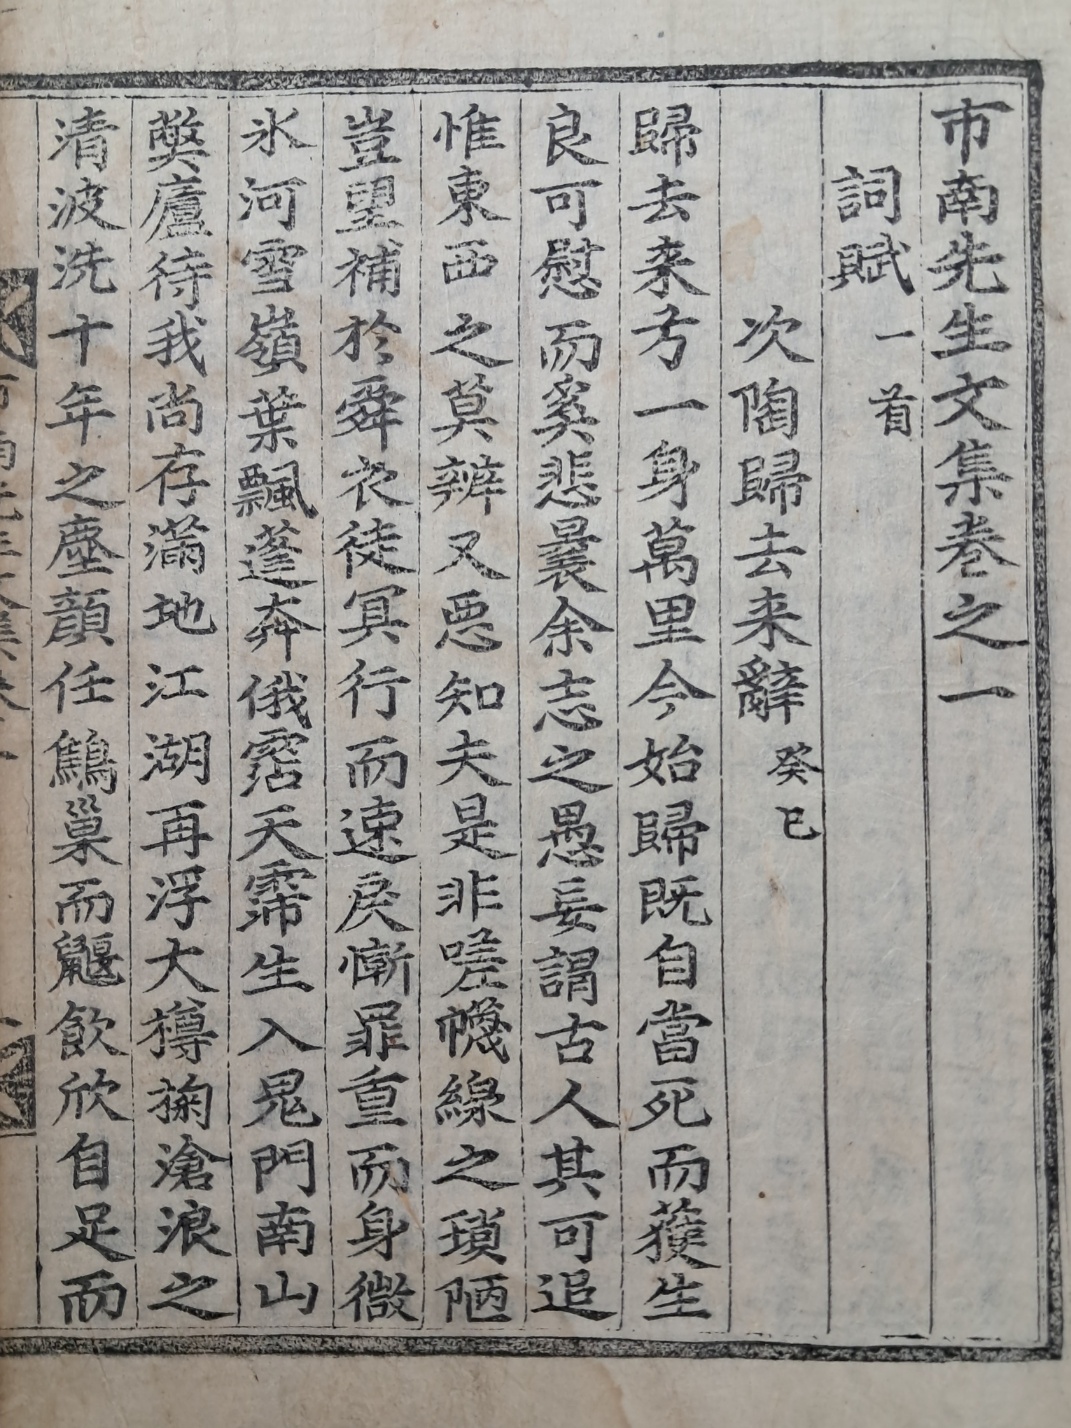 市南先生文集卷之一
詞賦 一首
次陶歸去来辭 癸巳
歸去来方一身萬里今始歸既自當死而獲生
良可慰而奚悲曩余志之愚妄謂古人其可追
惟東西之莫辨又惡知夫是非嗟幭線之瑣陋
豈望補於舜衣徒冥行而速戾慚罪重而身微
氷河雪嶺葉飄蓬奔俄霑天霈生入鬼門南山
弊廬待我尚存滿地江湖再浮大樽掬滄浪之
清波洗十年之塵顔任鷦巢而鼴飮欣自足而